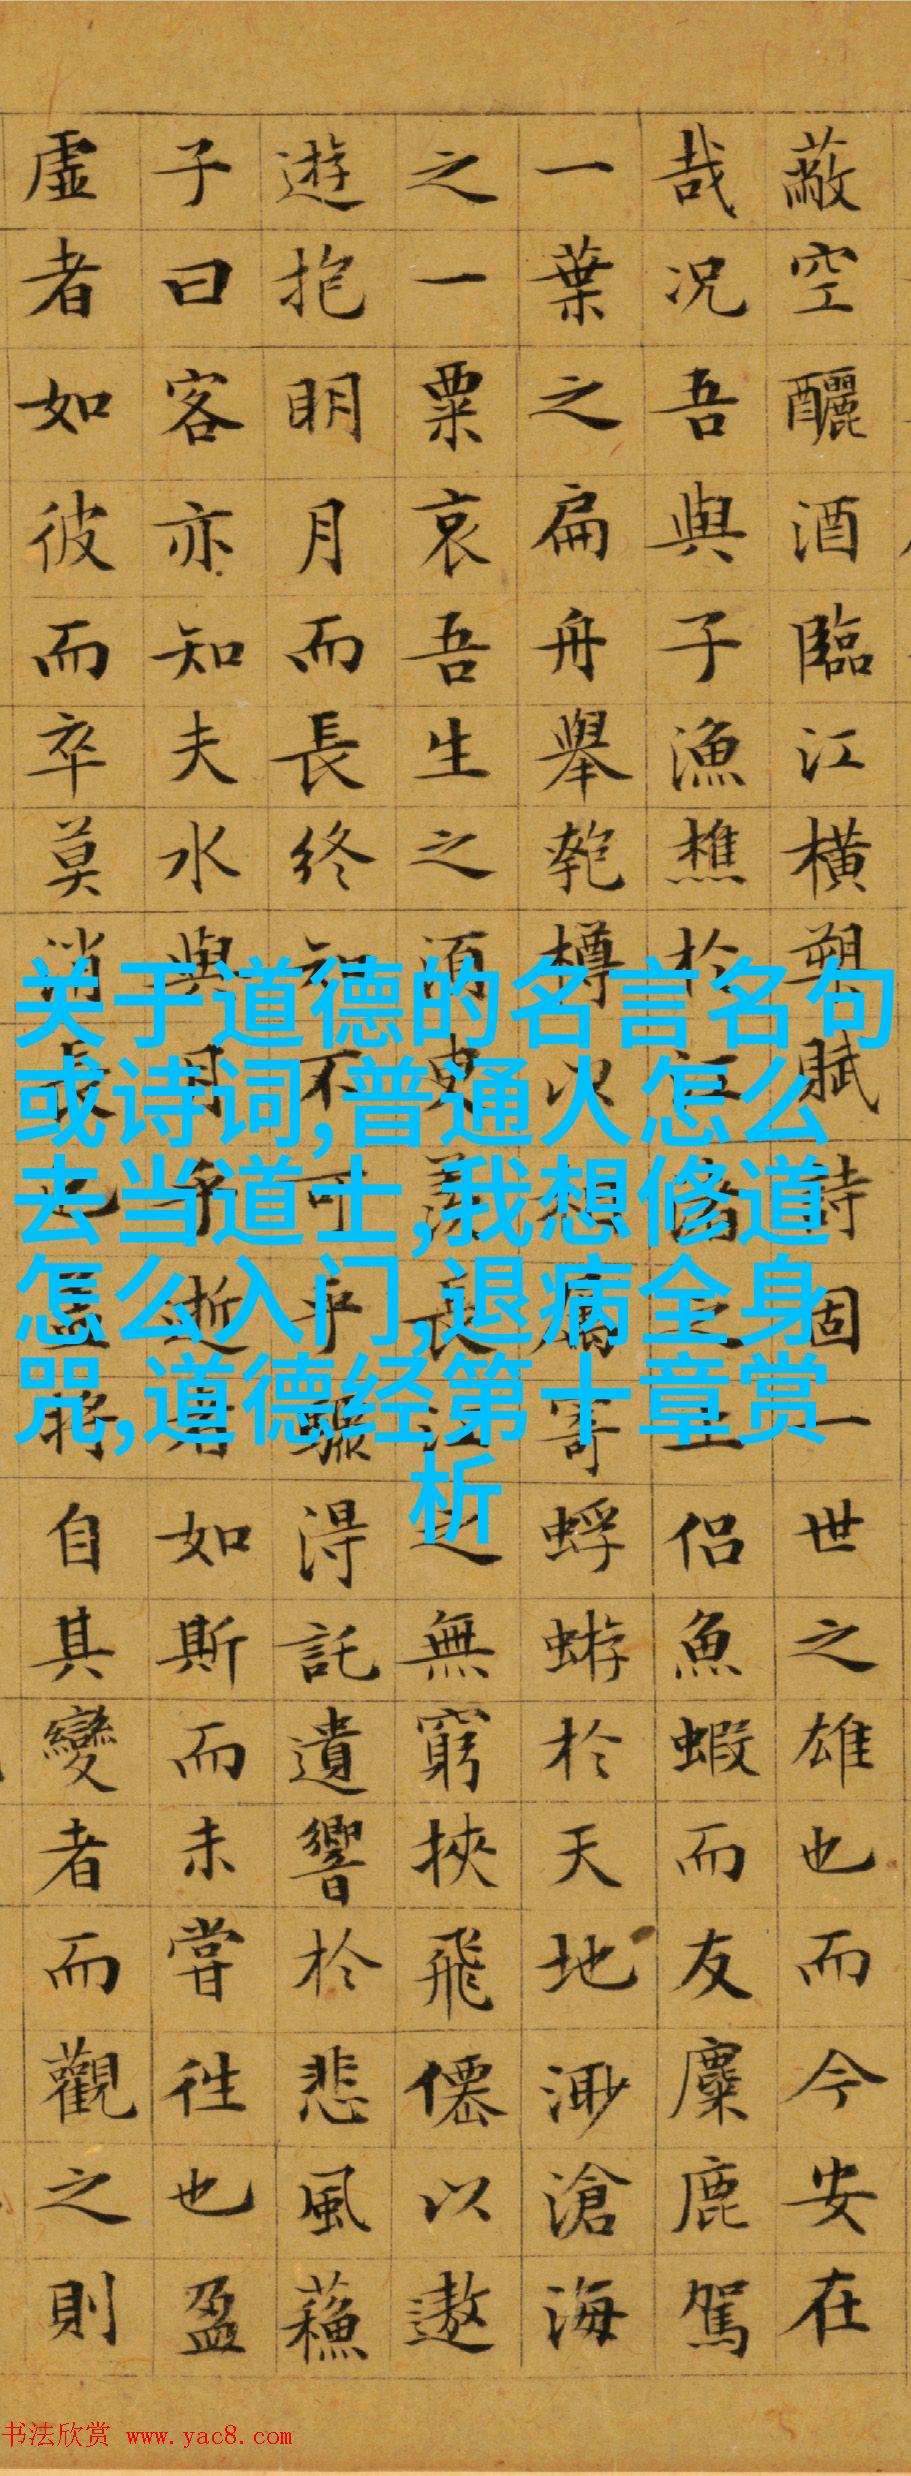 蔽空釃酒臨江橫槊賦詩固一世之雄也而今安在
哉况吾與子漁樵於江渚之上侶魚蝦而友麋鹿駕
一葉之扁舟舉匏樽以相屬寄蜉蝣於天地渺滄海
之一粟哀吾生之須臾羨長江之無窮挾飛僊以遨
遊抱明月而長終知不可乎驟得託遺響於悲風蘇
子曰客亦知夫水與月乎逝者如斯而未嘗往也盈
虛者如彼而卒莫消長也蓋將自其變者而觀之則
关于道德的名言名句
或诗词,普通人怎么
去当道士,我想修道
怎么入门,退病全身
咒,道德经第十章赏
析
书法欣赏 www.yac8.com